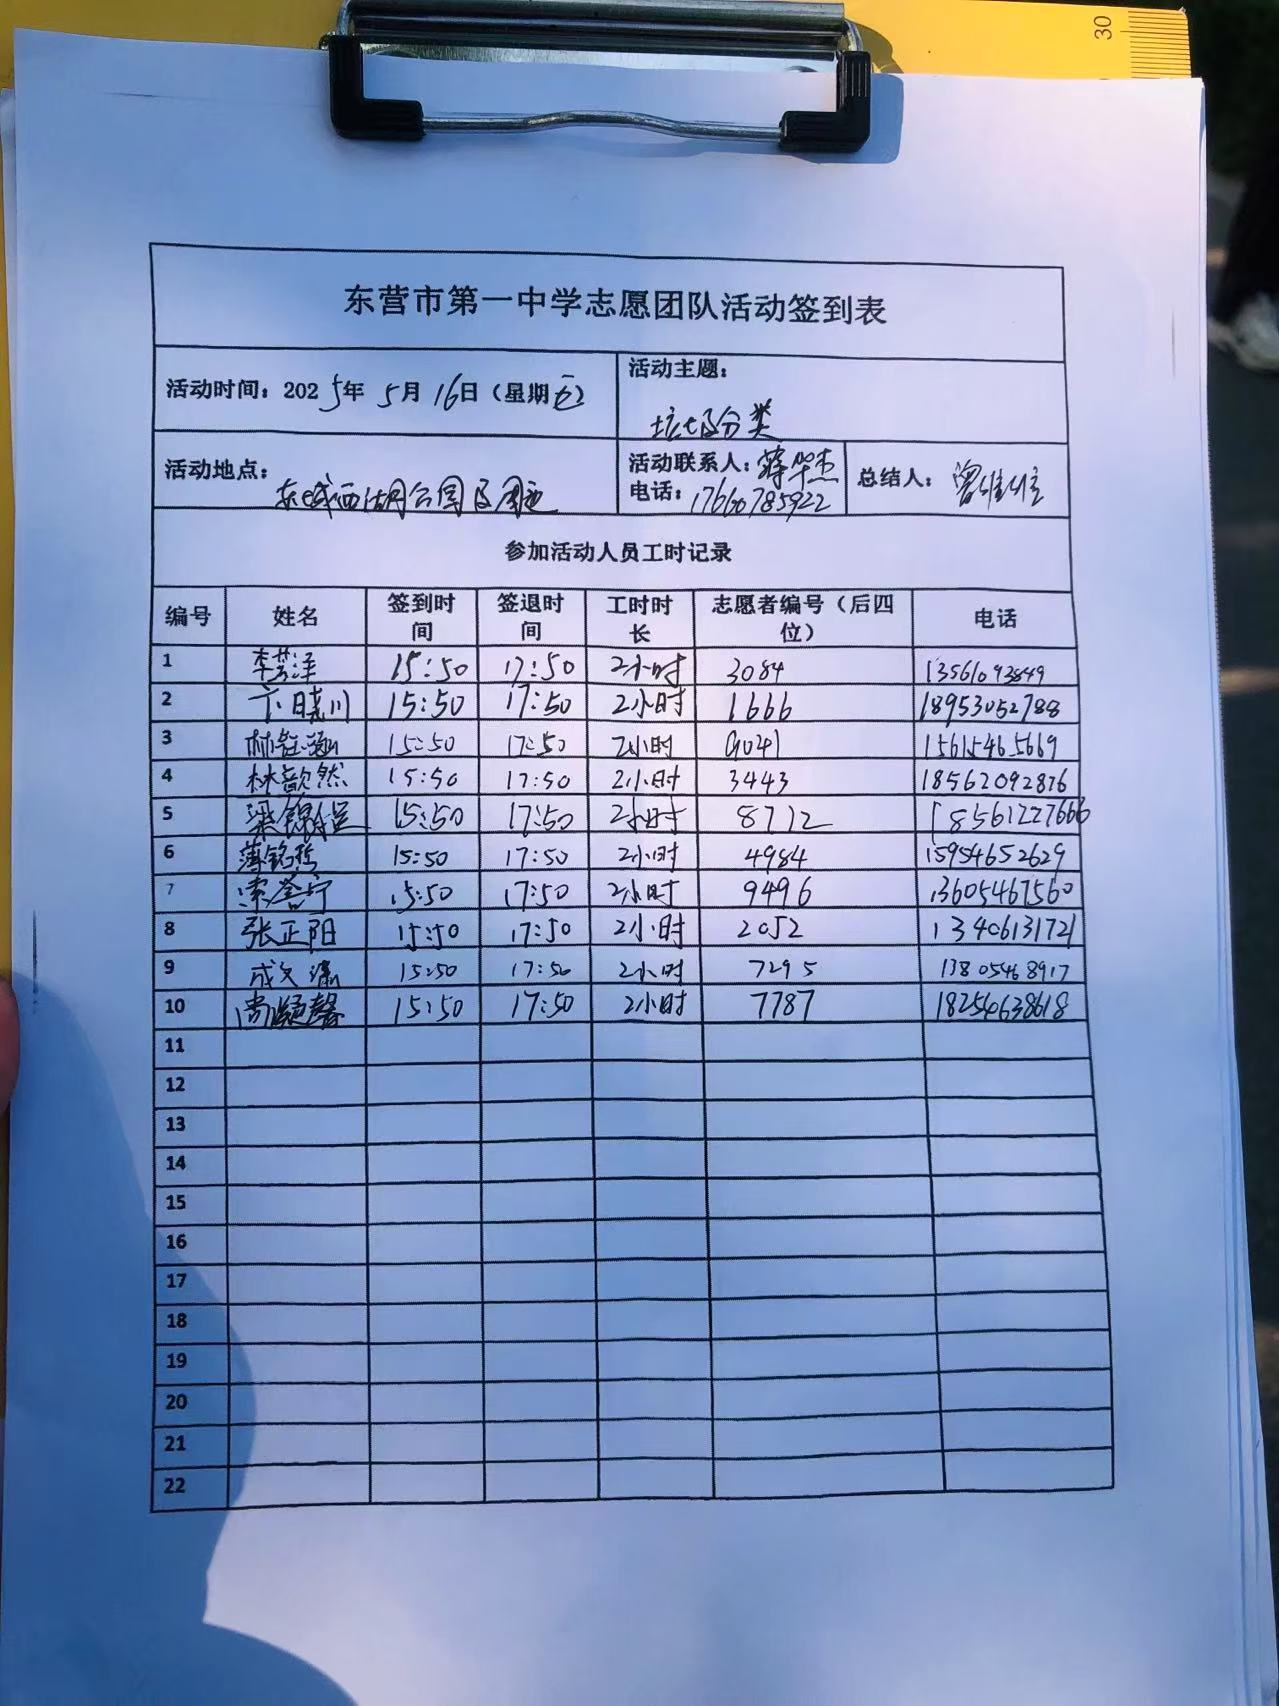 30
东营市第一中学志愿团队活动签到表
活动时间：2025年 5月 16日（星期五）
活动主题：
垃圾分类
活动地点：
东城西湖公园及周边
活动联系人：蒋华杰
电话：17660785922
总结人：
参加活动人员工时记录
编号 姓名 签到时间 签退时间 工时时长 志愿者编号（后四位） 电话
1 15:50 17:50 2小时 3084 13561093849
2 卞晓川 15:50 17:50 2小时 1666 18953052788
3 15:50 17:50 2小时 9041 15615465669
4 林歆然 15:50 17:50 2小时 3443 18562092876
5 15:50 17:50 2小时 8712 18561227666
6 薄铭哲 15:50 17:50 2小时 4984 15954652629
7 15:50 17:50 2小时 9496 13605467560
8 张正阳 15:50 17:50 2小时 2052 13406131721
9 15:50 17:50 2小时 7295 13805468917
10 15:50 17:50 2小时 7787 18254638618
11
12
13
14
15
16
17
18
19
20
21
22